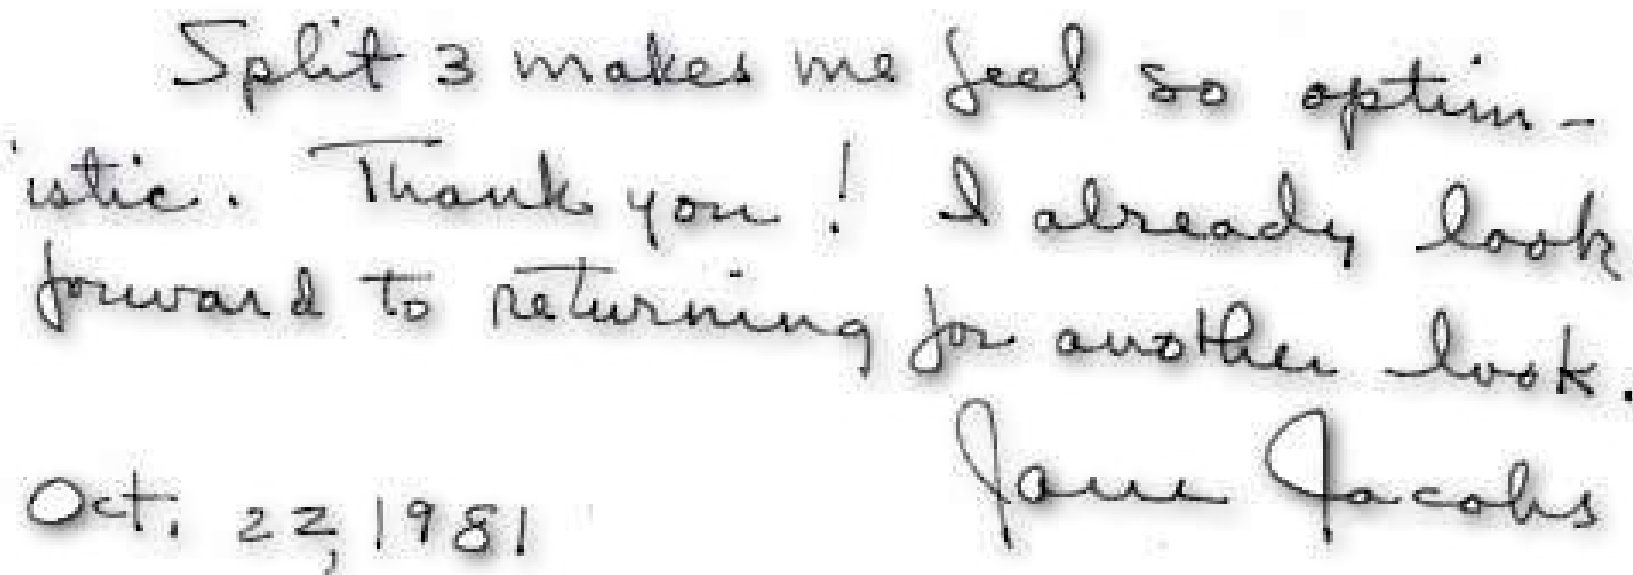 Split 3 makes me feel so optim-
istic. Thank you! I already look
forward to returning for another look.
Jane Jacobs
Oct. 22, 1981